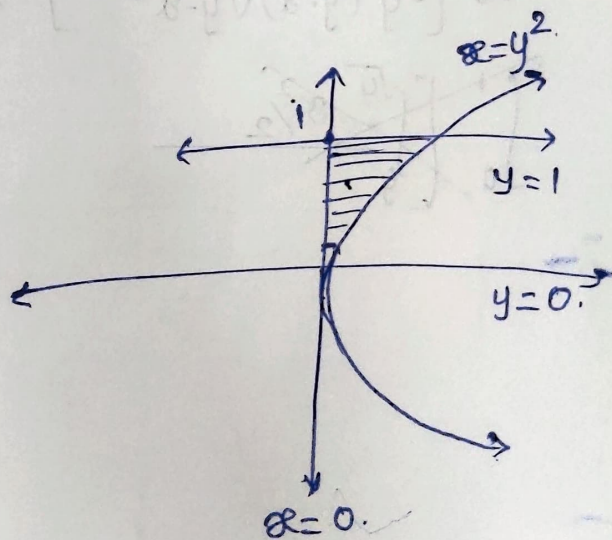 x=y²
1
y=1
y=0.
x=0.